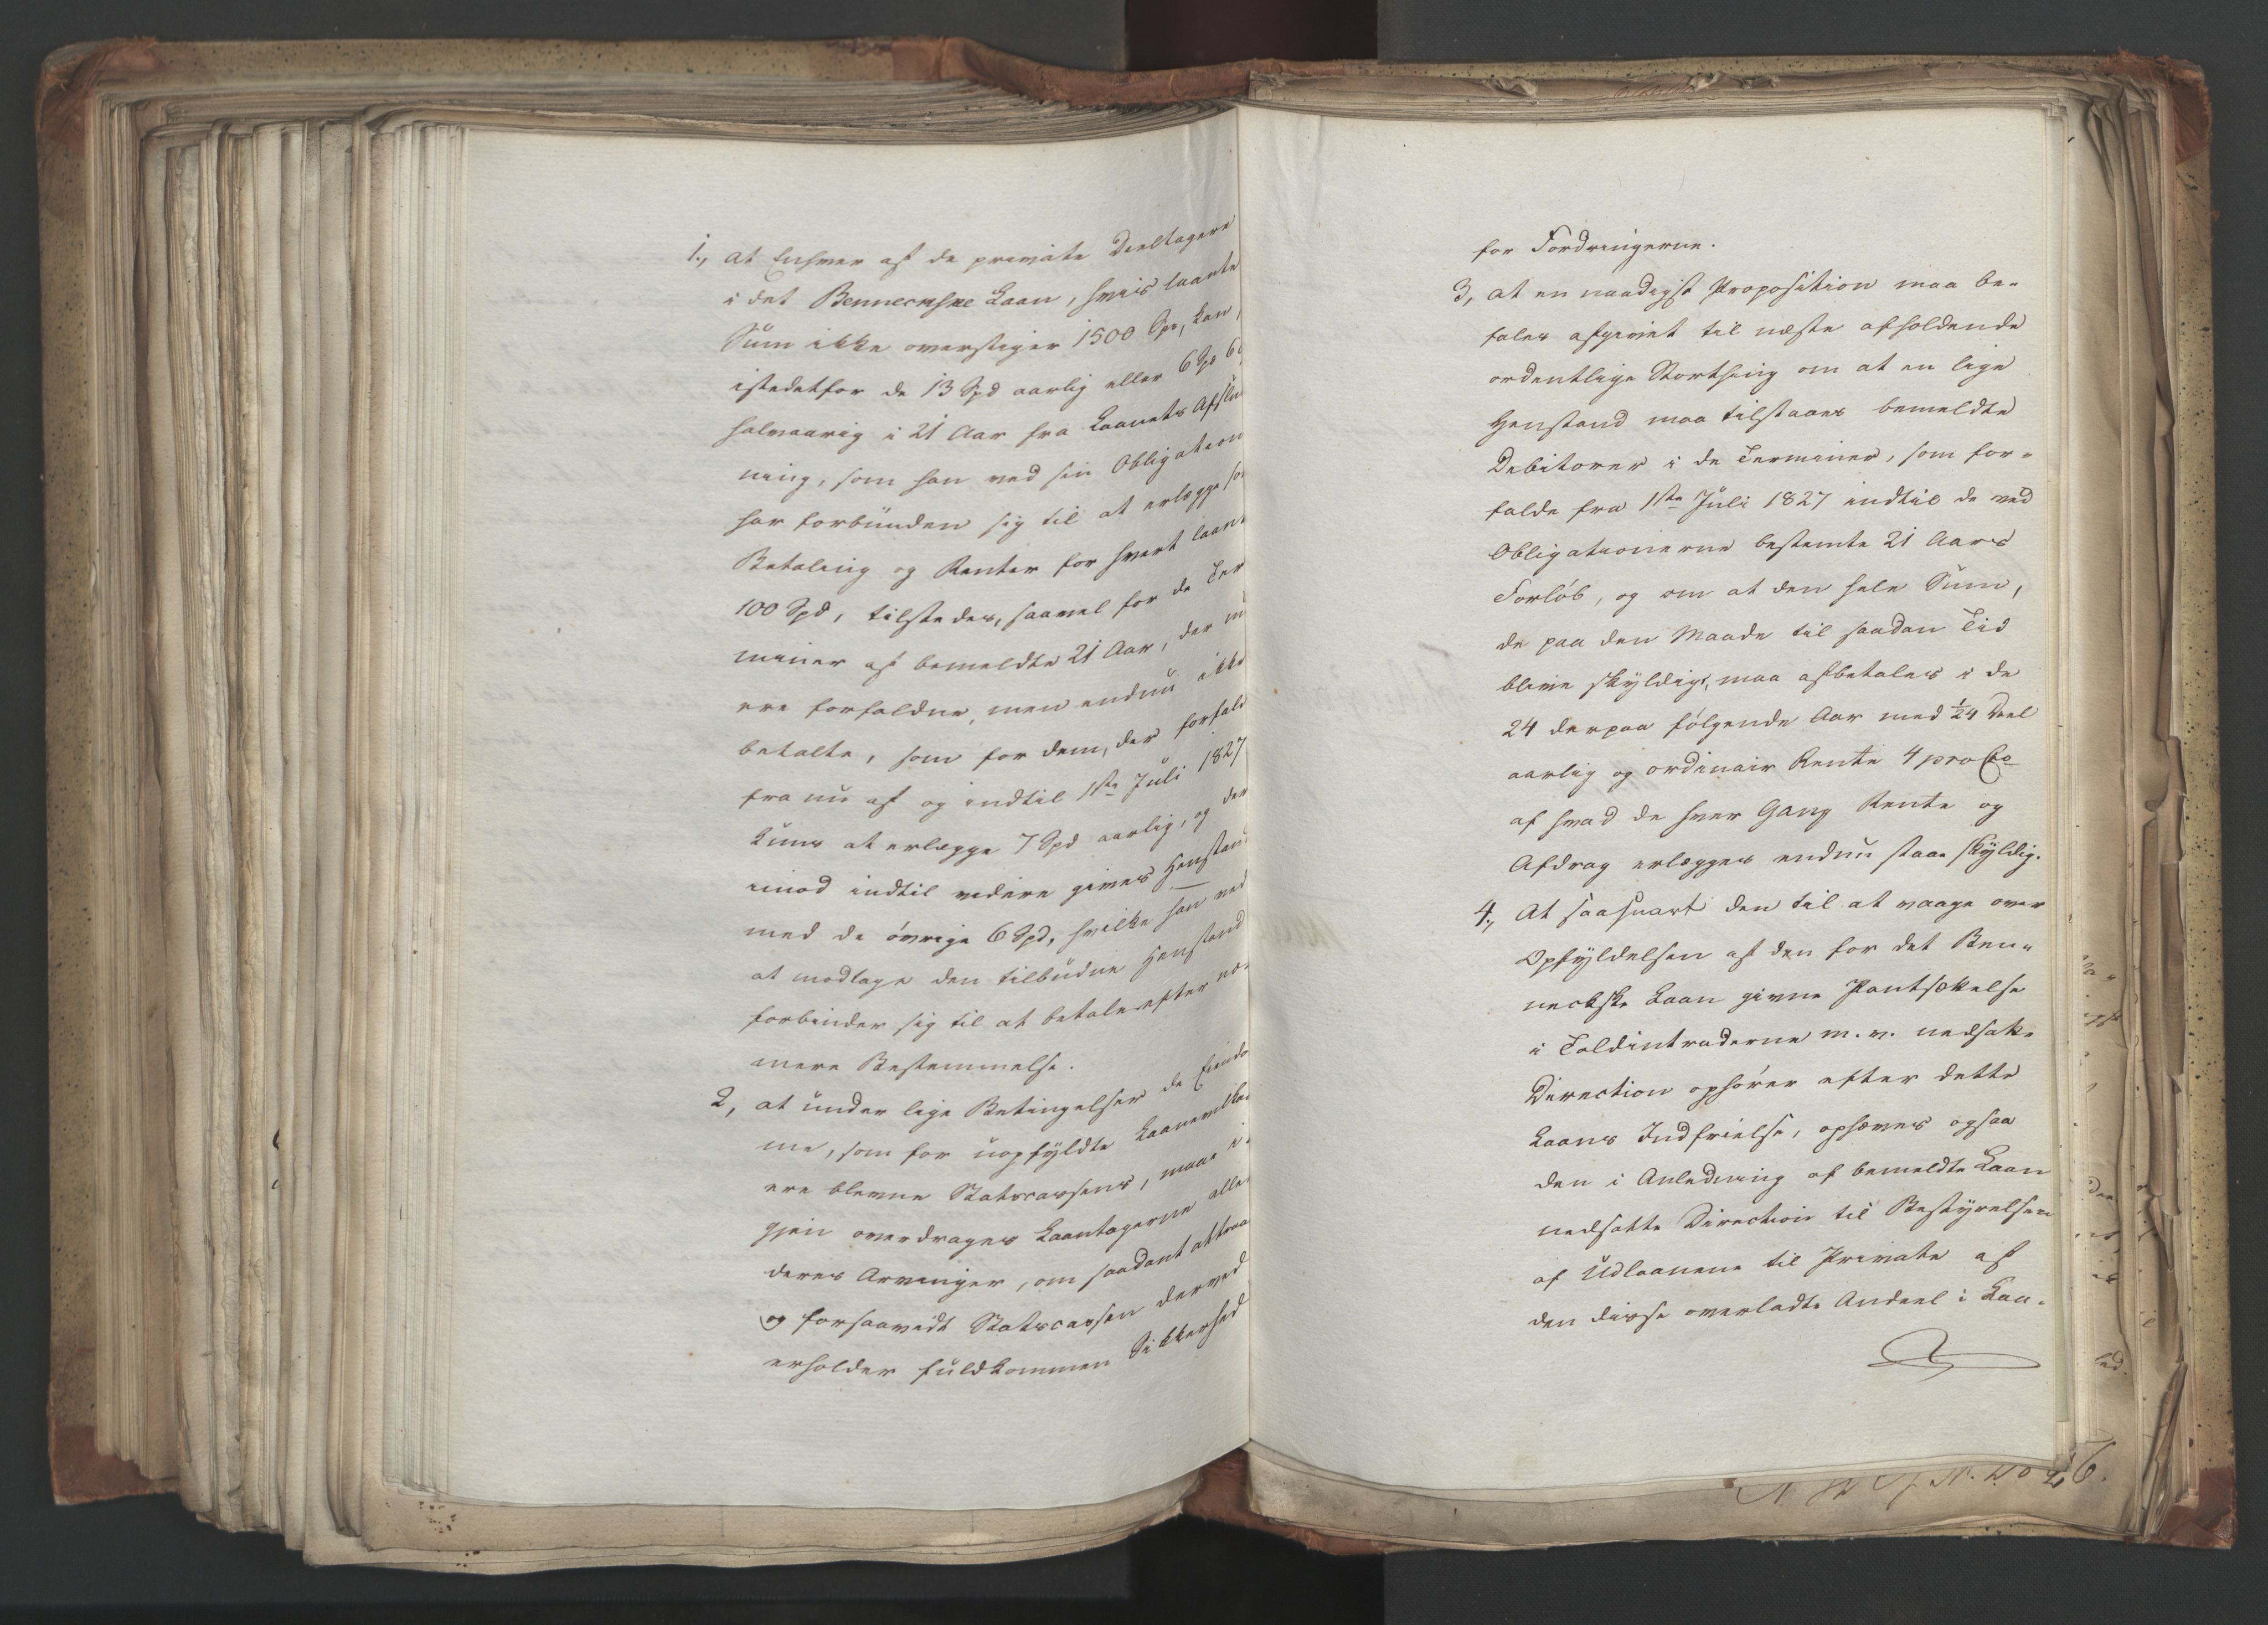 1., at Enhver af de private Deeltagere
i det Benneckske Laan, hvis laante
Sum ikke overstiger 1500 Spd, kan,
istedetfor de 13 Spd aarlig eller 6 Spd 6
halvaarig i 21 Aar fra Laanets Afslut
ning, som han ved sin Obligation
har forbunden sig til at erlægge so
Betaling og Renter for hvert laant
100 Spd, tilstedes, saavel for de Ter
miner af bemeldte 21 Aar, der nu
ere forfaldne, men endnu ikke
betalte, som for dem, der forfald
fra nu af og indtil 1ste Juli 1827
kuns at erlægge 7 Spd aarlig, og der
imod indtil videre gives Henstand
med de øvrige 6 Spd, hvilke han ved
at modtage den tilbudne Henstand
forbinder sig til at betale efter nær
mere Bestemmelse.
2, at under lige Betingelser de Eiendo
me, som for uopfyldte Laanevilkaa
ere blevne Statscassens, maae i
gjen overdrages Laantagerne eller
deres Arvinger, om saadant attraa
og forsaavidt Statscassen derved
erholder fuldkommen Sikkerhed
for Fordringerne.
3, at en naadigst Proposition maa be-
fales afgivet til næste afholdende
ordentlige Storthing om at en lige
Henstand maa tilstaaes bemeldte
Debitorer i de Terminer, som for-
falde fra 1ste Juli 1827 indtil de ved
Obligationerne bestemte 21 Aars
Forløb, og om at den hele Sum,
de paa den Maade til saadan Tid
blive skyldige, maa afbetales i de
24 derpaa følgende Aar med 1/24 Deel
aarlig og ordinair Rente 4 pro Cto
af hvad de hver Gang Rente og
Afdrag erlægges endnu staae skyldig.
4., At saasnart den til at vaage over
Opfyldelsen af den for det Ben-
neckske Laan givne Pantsættelse
i Toldintraderne m. v. nedsatte
Direction ophører efter dette
Laans Indfrielse, ophæves ogsaa
den i Anledning af bemeldte Laan
nedsatte Direction til Bestyrelsen
af Udlaanene til Private af
den disse overladte Andeel i Laa-